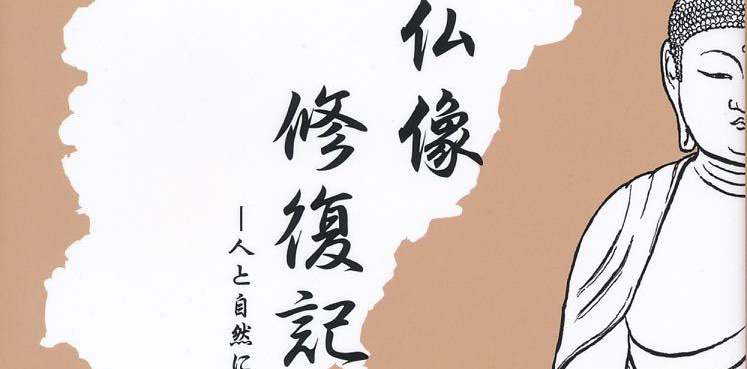 仏像
修復記
―人と自然に